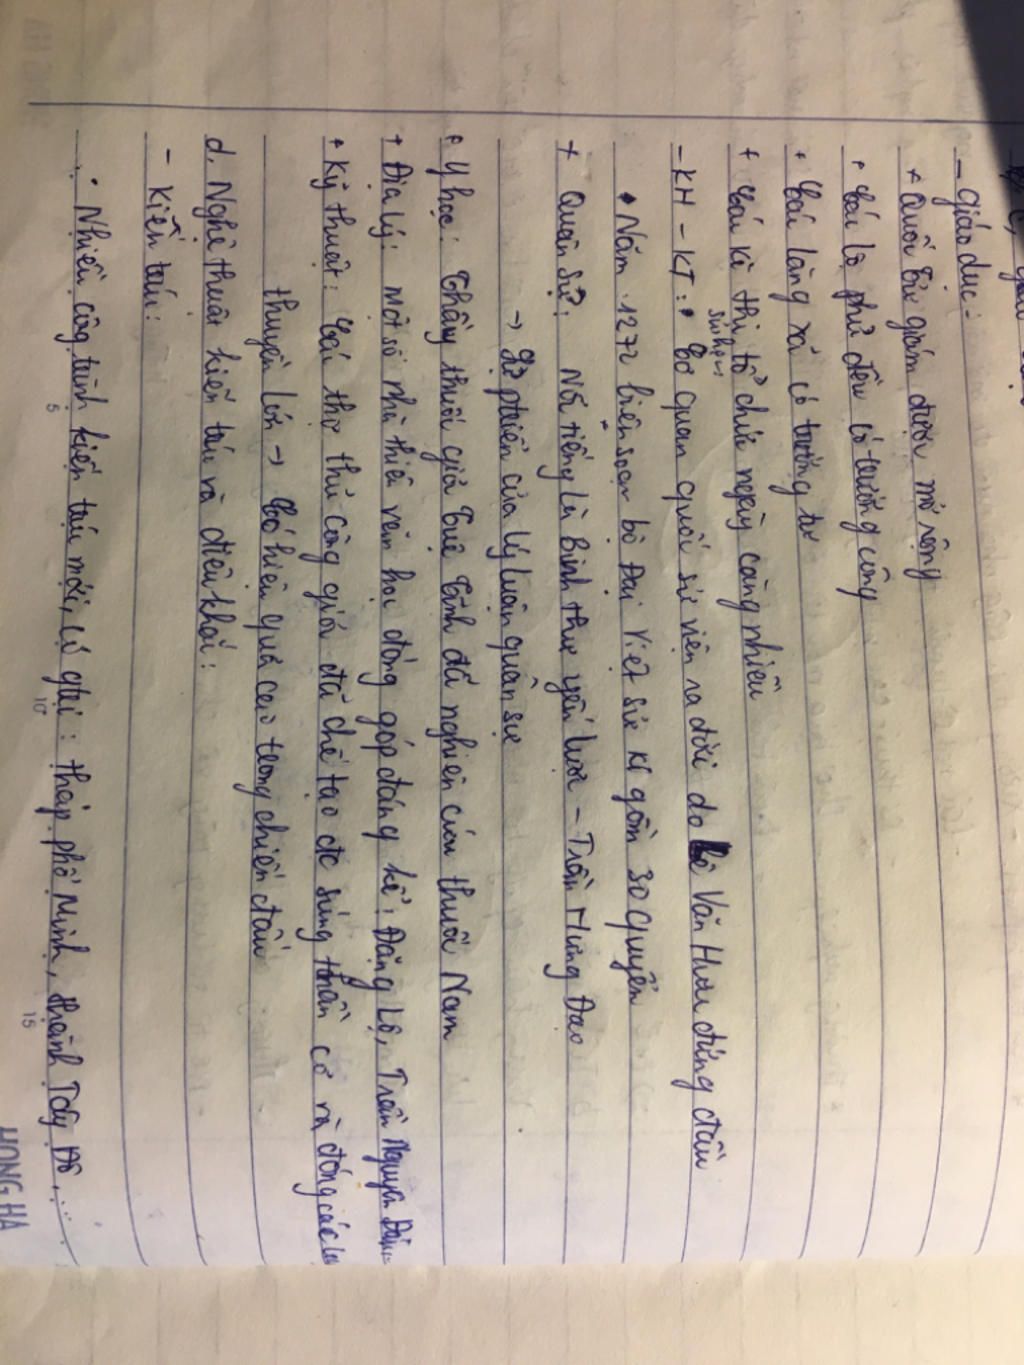 - Giáo dục:
+ Quốc tử giám được mở rộng
+ Các lộ, phủ đều có trường công
+ Các làng xã có trường tư
+ Các kì thi tổ chức ngày càng nhiều
- KH - KT: • Cơ quan quốc sử viện ra đời do Lê Văn Hưu đứng đầu
• Năm 1272 biên soạn bộ Đại Việt sử kí gồm 30 quyển
+ Quân sự: Nổi tiếng là Binh thư yếu lược - Trần Hưng Đạo
của lý luận quân sự
+ Y học: Thầy thuốc giỏi Tuệ Tĩnh đã nghiên cứu thuốc Nam
+ Địa lý: Một số nhà thiên văn học đóng góp đáng kể: Đặng Lộ, Trần Nguyên Đán
+ Kỹ thuật: Các thợ thủ công giỏi đã chế tạo đc súng thần cơ và đóng các
thuyền lớn → Có hiệu quả cao trong chiến đấu
d. Nghệ thuật kiến trúc và điêu khắc:
- Kiến trúc:
• Nhiều công trình kiến trúc mới, có giá trị: tháp phổ Minh, thành Tây Đô,...
5
10
15
HONG HA